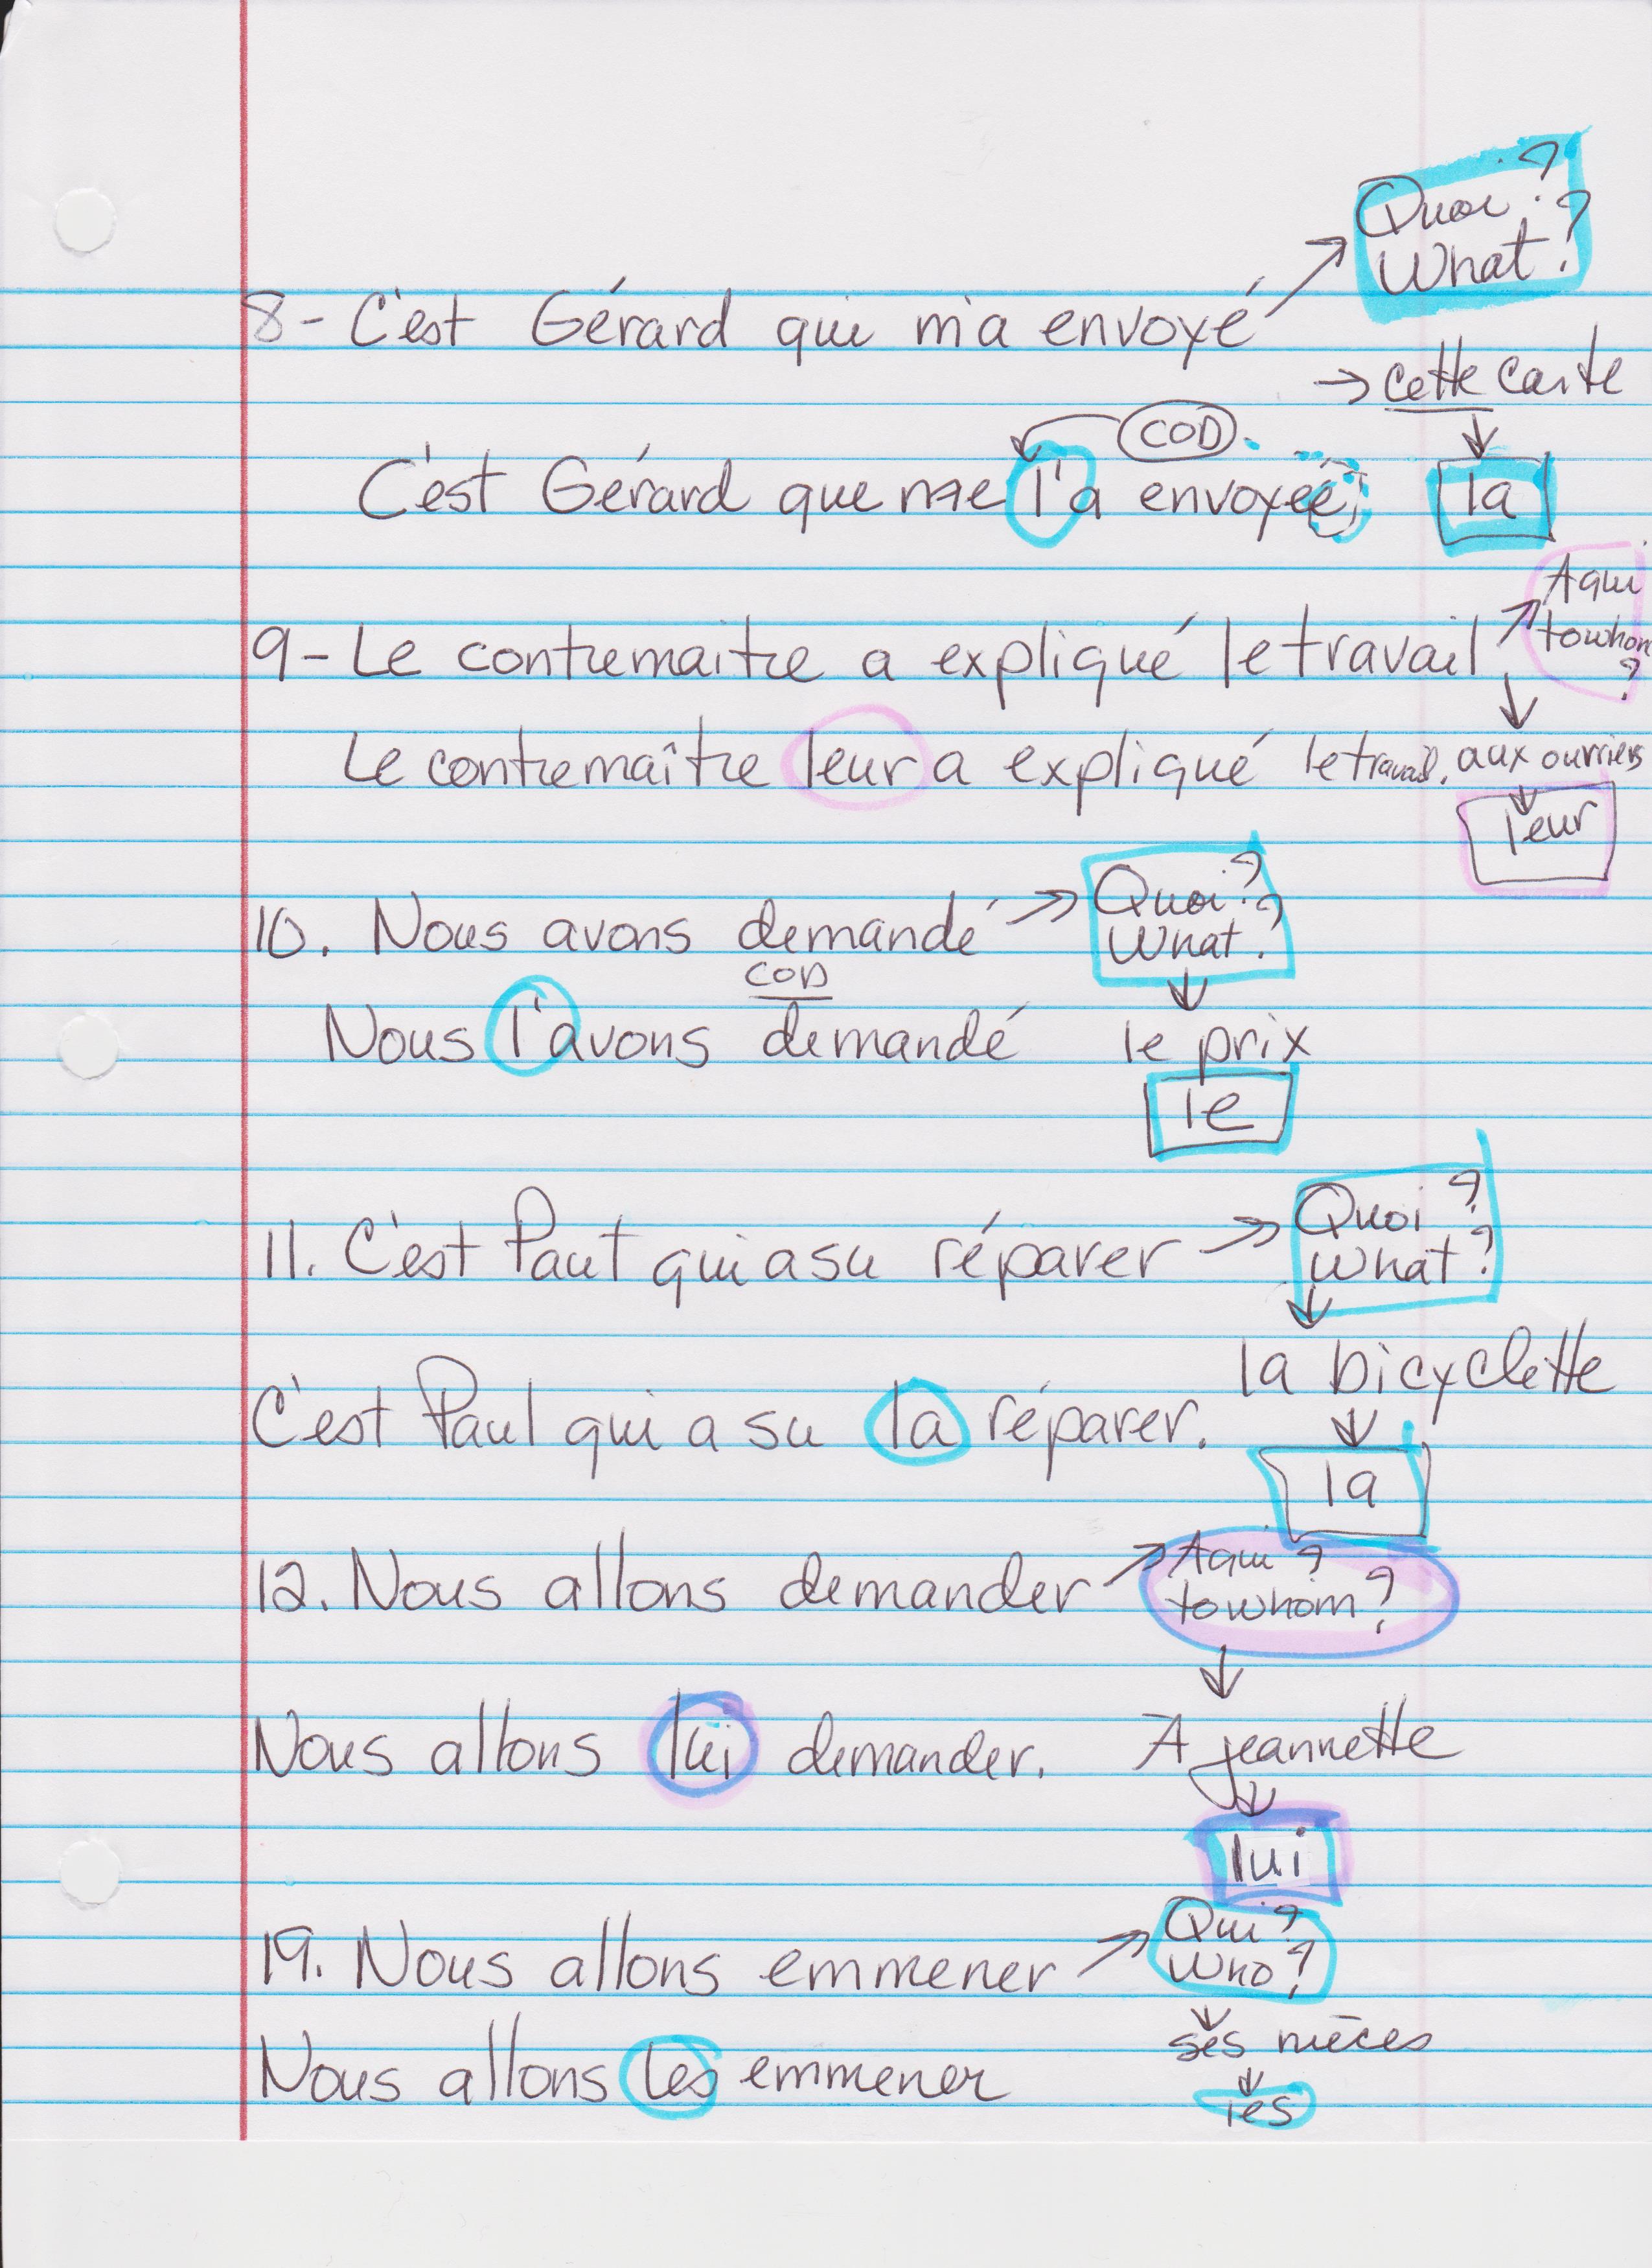 Quoi?
What?
8- C'est Gérard qui m'a envoyé
→ cette carte
COD
C'est Gérard que me l'a envoyée
la
A qui
to whom
?
9- Le contremaitre a expliqué le travail
Le contremaître leur a expliqué le travail. aux ourriers
leur
Quoi?
What?
10. Nous avons demandé
COD
Nous l'avons demandé
le prix
le
Quoi?
What?
11. C'est Paul qui a su réparer
la bicyclette
C'est Paul qui a su la réparer.
la
A qui?
to whom?
12. Nous allons demander
Nous allons lui demander.
A jeannette
lui
Qui?
Who?
19. Nous allons emmener
ses nièces
Nous allons les emmener
les